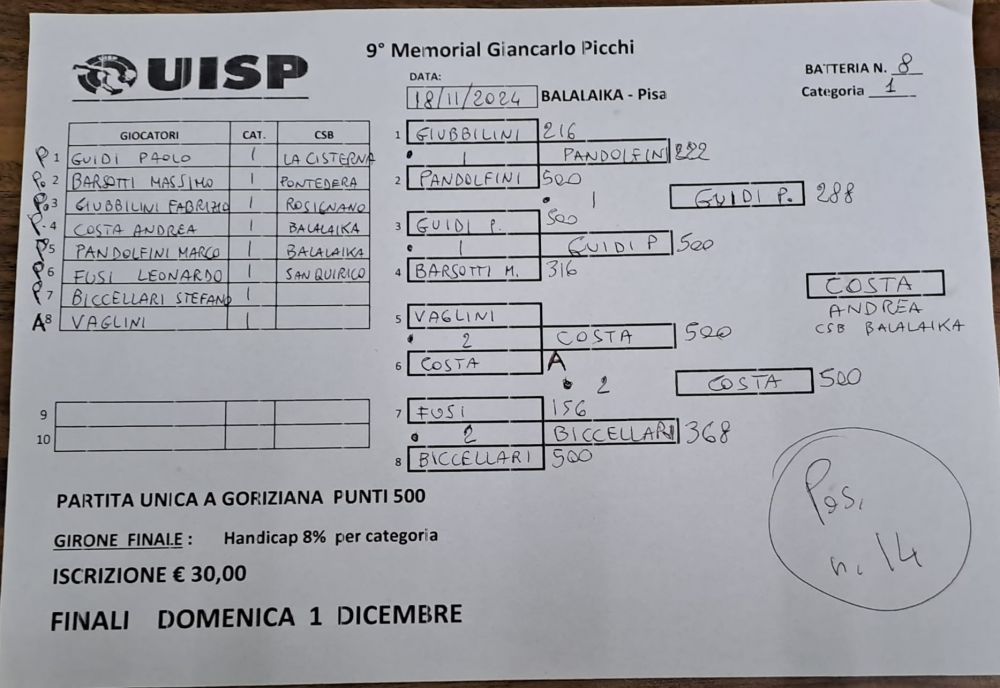 UISP
9° Memorial Giancarlo Picchi
DATA:
18/11/2024 BALALAIKA - Pisa
BATTERIA N. 8
Categoria 1
GIOCATORI CAT. CSB
P 1 GUIDI PAOLO 1 LA CISTERNA
P. 2 BARSOTTI MASSIMO 1 PONTEDERA
P. 3 GIUBBILINI FABRIZIO 1 ROSIGNANO
P. 4 COSTA ANDREA 1 BALALAIKA
P 5 PANDOLFINI MARCO 1 BALALAIKA
P 6 FUSI LEONARDO 1 SAN QUIRICO
P 7 BICCELLARI STEFANO 1
A 8 VAGLINI 1
9
10
1 GIUBBILINI 216
1 PANDOLFINI 222
2 PANDOLFINI 500
1 GUIDI P. 288
3 GUIDI P. 500
1 GUIDI P 500
4 BARSOTTI M. 316
COSTA
ANDREA
CSB BALALAIKA
5 VAGLINI
2 COSTA 500
6 COSTA A
2 COSTA 500
7 FUSI 156
2 BICCELLARI 368
8 BICCELLARI 500
PARTITA UNICA A GORIZIANA PUNTI 500
GIRONE FINALE : Handicap 8% per categoria
ISCRIZIONE € 30,00
FINALI DOMENICA 1 DICEMBRE
Pos.
n. 14